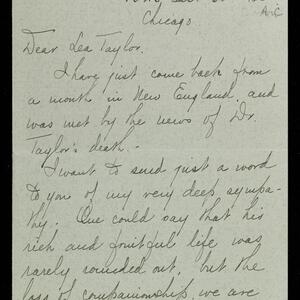 Chicago
Dear Lea Taylor.
I have just come back from
a month in New England, and
was met by the news of Dr.
Taylor's death.-
I want to send just a word
to you of my very deep sympa-
thy. One could say that his
rich and fruitful life was
rarely rounded out, but the
loss of companionship, we are